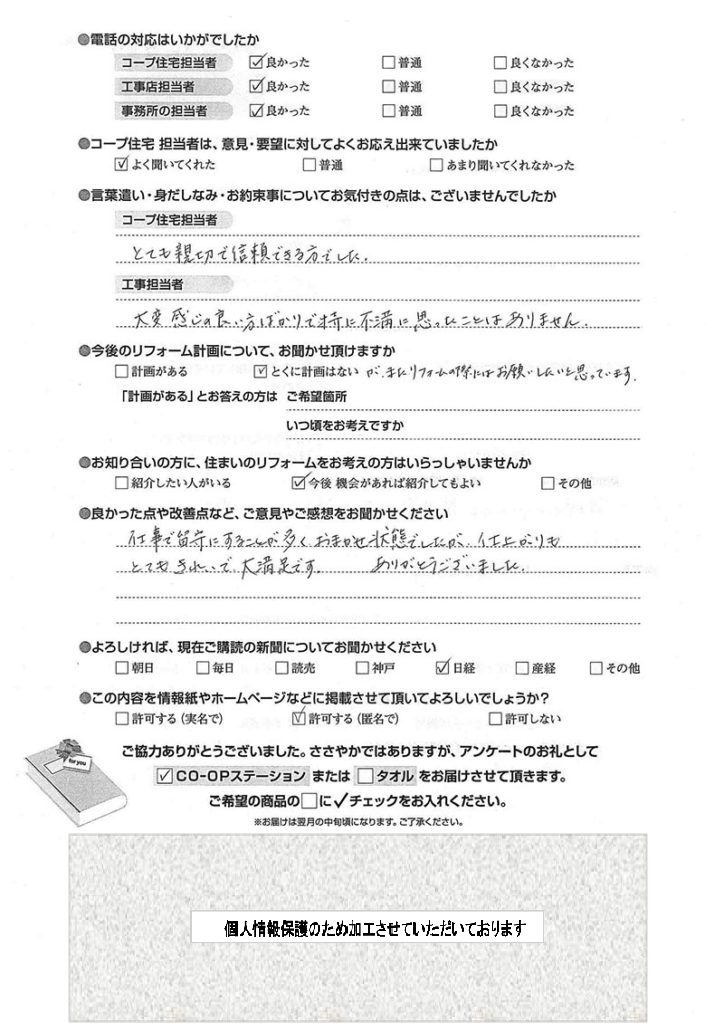 ●電話の対応はいかがでしたか
コープ住宅担当者 ☑良かった □普通 □良くなかった
工事店担当者 ☑良かった □普通 □良くなかった
事務所の担当者 ☑良かった □普通 □良くなかった
●コープ住宅 担当者は、意見・要望に対してよくお応え出来ていましたか
☑よく聞いてくれた □普通 □あまり聞いてくれなかった
●言葉遣い・身だしなみ・お約束事についてお気付きの点は、ございませんでしたか
コープ住宅担当者
とても親切で信頼できる方でした。
工事担当者
大変感じの良い方ばかりで特に不満に思ったことはありません。
●今後のリフォーム計画について、お聞かせ頂けますか
□計画がある ☑とくに計画はない が、またリフォームの際にはお願いしたいと思っています。
「計画がある」とお答えの方は ご希望箇所
いつ頃をお考えですか
●お知り合いの方に、住まいのリフォームをお考えの方はいらっしゃいませんか
□紹介したい人がいる ☑今後 機会があれば紹介してもよい □その他
●良かった点や改善点など、ご意見やご感想をお聞かせください
仕事で留守にすることが多くおまかせ状態でしたが、仕上がりも
とてもきれいで、大満足です。 ありがとうございました。
●よろしければ、現在ご購読の新聞についてお聞かせください
□朝日 □毎日 □読売 □神戸 ☑日経 □産経 □その他
●この内容を情報紙やホームページなどに掲載させて頂いてよろしいでしょうか?
□許可する(実名で) ☑許可する(匿名で) □許可しない
for you
ご協力ありがとうございました。ささやかではありますが、アンケートのお礼として
☑CO-OPステーション または □タオル をお届けさせて頂きます。
ご希望の商品の□に✓チェックをお入れください。
※お届けは翌月の中旬頃になります。ご了承ください。
個人情報保護のため加工させていただいております